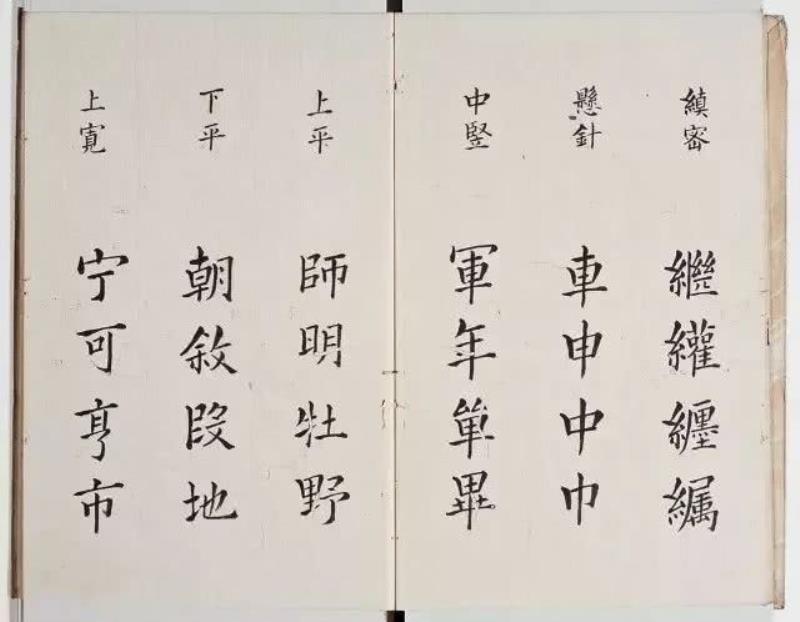 縝密
繼
纏
懸針
車申中巾
中竪
軍年單畢
上平
師明牡野
下平
朝敘段地
上寛
宁可亨市